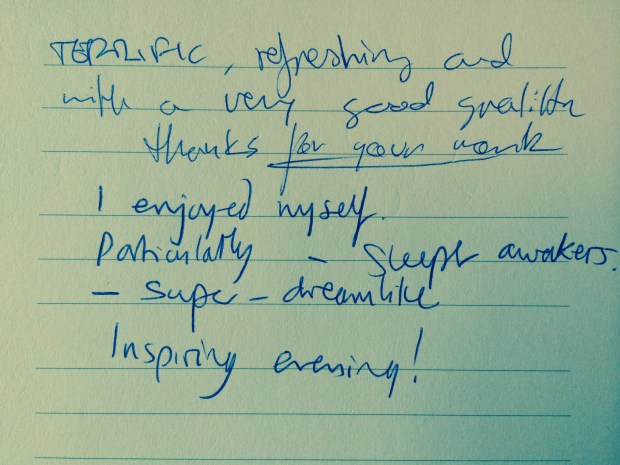 TERRIFIC, refreshing and
with a very good quality
thanks for your work
I enjoyed myself.
Particularly - sleepr awakers.
- super-dreamlike
Inspiring evening!